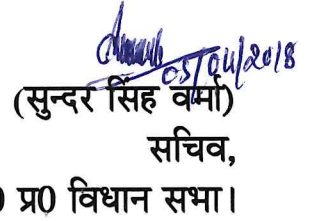 05/04/2018
(सुन्दर सिंह वर्मा)
सचिव,
प्र0 विधान सभा।